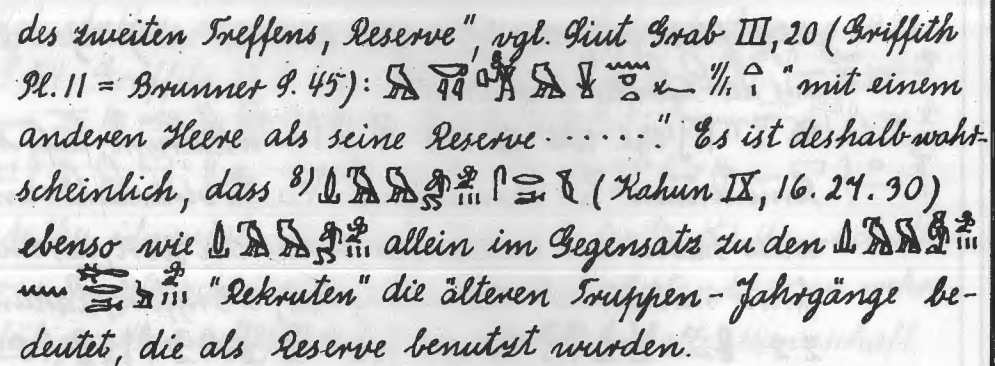 des zweiten Treffens, Reserve", vgl. Siut Grab III, 20 (Griffith
Pl. 11 = Brunner S. 45): "mit einem
anderen Heere als seine Reserve ......" Es ist deshalb wahr-
scheinlich, dass 8) (Kahun IX, 16. 24. 30)
ebenso wie allein im Gegensatz zu den
"Rekruten" die älteren Truppen-Jahrgänge be-
deutet, die als Reserve benutzt wurden.